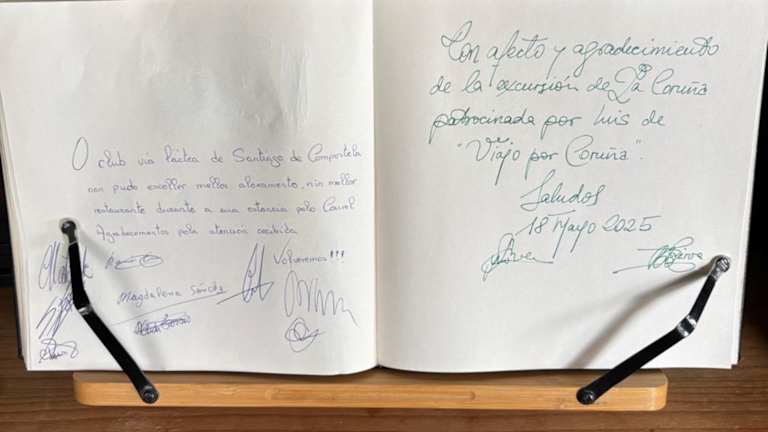 O club vía láctea de Santiago de Compostela
non pudo escoller mellor aloxamento, nin mellor
restaurante durante a súa estancia polo Courel
Agradecementos pola atención recibida
Volveremos!!!
Magdalena Sánchez
Con afecto y agradecimiento
de la excursión de La Coruña
patrocinada por Luis de
"Viajo por Coruña".
Saludos
18 Mayo 2025